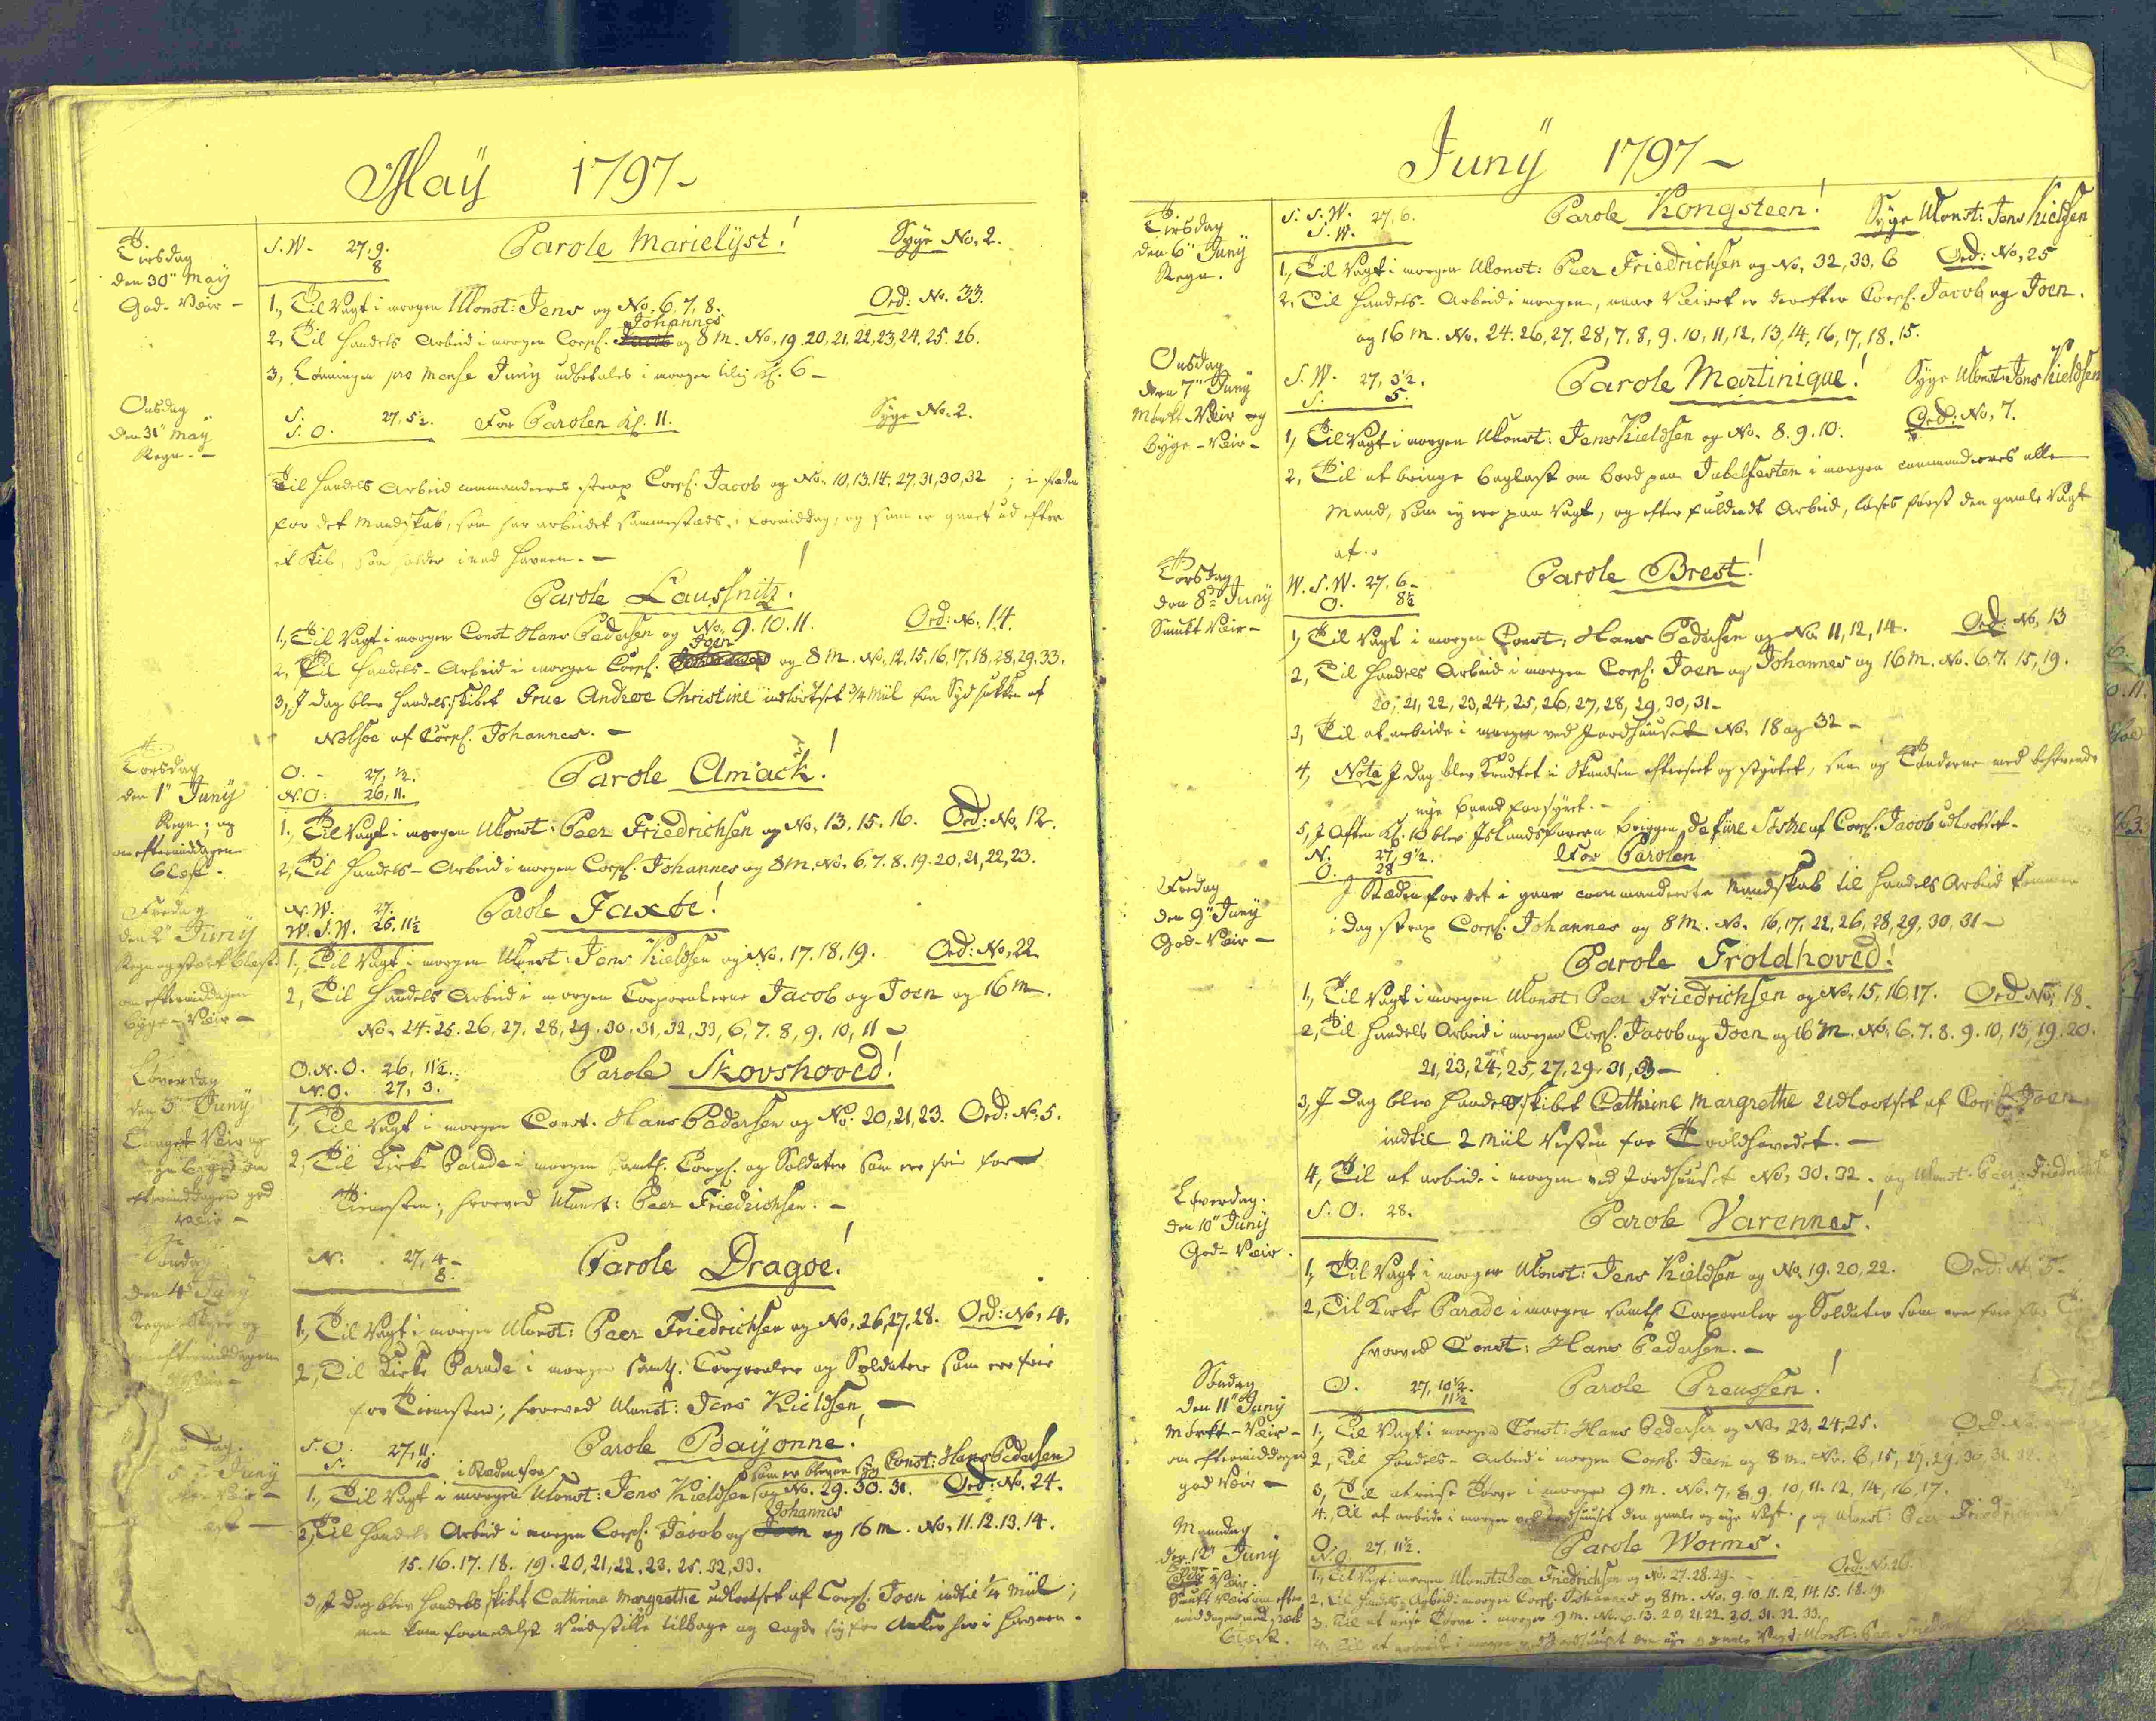 Maÿ 1797 –
Tirsdag
den 30" Maÿ
God-Veir –
S.W. 27,9.
8
Parole Marielÿst!
Syge No. 2.
1, Til Vagt i morgen Ukonst: Jens og No. 6, 7, 8.
Ord: No. 33.
Johannes
2, Til Handels Arbeid i morgen Corpl. Jacob og 8 m. No. 19, 20, 21, 22, 23, 24, 25. 26.
3, Lønningen pro Mense Junÿ udbetales i morgen tilig Kl. 6 –
Onsdag
den 31" Maÿ
Regn. –
S. 27, 5½.
S.O.
Før Parolen Kl. 11.
Syge No. 2.
Til Handels Arbeid commanderes strax Corpl. Jacob og No. 10, 13, 14, 27, 31, 30, 32 ; i steden
for det Mandskab, som har arbeidet sammesteds i formiddag, og som er gaaet ud efter
et Skib, som holder ind Havnen. –
Parole Laussnitz!
1, Til Vagt i morgen Const Hans Pedersen og No. 9. 10. 11.
Ord: No. 14.
Joen
2, Til Handels-Arbeid i morgen Corpl. og 8 m. No. 12, 15, 16, 17, 18, 28, 29. 33.
3, I Dag blev Handels Skibet Frue Andrea Christine indlootset 3/4 Miil fra Syd
Nolsøe af Corpl. Johannes. –
Torsdag
den 1" Junÿ
Regn; og
om eftermiddagen
blæst.
O. – 27, ½.
N.O: 26, 11.
Parole Amack!
1, Til Vagt i morgen Ukonst: Peer Friedrichsen og No. 13. 15. 16. Ord: No. 12.
2, Til Handels-Arbeid i morgen Corpl. Johannes og 8 m. No. 6. 7. 8. 19. 20, 21, 22, 23.
Fredag
den 2" Junÿ
Regn og stærk blæst.
om eftermiddagen
byge-Veir –
N.W. 27.
W.S.W. 26. 11½
Parole Faxøe!
1, Til Vagt i morgen Ukonst: Jens Kieldsen og No. 17. 18. 19. Ord: No. 22
2, Til Handels Arbeid i morgen Corporalerne Jacob og Joen og 16 m.
No. 24. 25. 26, 27. 28, 29. 30. 31. 32, 33, 6, 7. 8, 9. 10, 11 –
Løverdag
den 3" Junÿ
Taaget Veir og
om
eftermiddagen god
Veir –
O.N.O. 26, 11½.
N.O. 27, 3.
Parole Skovshoved!
1, Til Vagt i morgen Const. Hans Pedersen og No. 20, 21, 23. Ord: No. 5.
2, Til Kirke Parade i morgen samtl. Corpl. og Soldater som ere frie for
Tienesten; hvorved Ukonst: Peer Friedrichsen. –
Søndag
den 4" Junÿ
Regn og
om eftermiddagen
Veir –
N. 27, 4 –
8.
Parole Dragøe!
1, Til Vagt i morgen Ukonst: Peer Friedrichsen og No. 26, 27, 28. Ord: No. 4.
2, Til Kirke Parade i morgen samtl. Corporaler og Soldater som ere frie
for Tienesten; hvorved Ukonst: Jens Kieldsen –
Junÿ
S.O. 27, 11.
S. 10
Parole Bayonne!
i Steden for
som er bleven syg Const: Hans Pedersen
1, Til Vagt i morgen Ukonst: Jens Kieldsen og No. 29. 30. 31. Ord: No. 24.
Johannes
2, Til Handels Arbeid i morgen Corpl. Jacob og Joen og 16 m. No. 11. 12. 13. 14.
15. 16. 17. 18. 19. 20, 21, 22. 23. 25. 32, 33.
3, I Dag blev Handels Skibet Cathrine Margrethe udlootset af Corpl. Joen indtil 1/4 Miil;
men kom formedelst Vindstille tilbage og lagde sig for Anker her i Havnen.
Junÿ 1797 –
Tirsdag
den 6" Junÿ
Regn.
S.S.W. 27, 6.
S.W.
Parole Kongsteen!
Syge Ukonst: Jens Kieldsen
1, Til Vagt i morgen Ukonst: Peer Friedrichsen og No. 32, 33, 6 Ord: No. 25
2, Til Handels-Arbeid i morgen, naar Veiret er derefter Corpl. Jacob og Joen.
og 16 m. No. 24. 26, 27, 28, 7, 8, 9. 10, 11, 12, 13, 14, 16, 17, 18. 15.
Onsdag
den 7" Junÿ
Mørkt-Veir og
byge-Veir –
S.W. 27, 3½.
S. 5.
Parole Martinique!
Syge Ukonst: Jens Kieldsen
1, Til Vagt i morgen Ukonst: Jens Kieldsen og No. 8. 9. 10.
Ord: No. 7.
2, Til at bringe Baglast om Bord paa Jubelfesten i morgen commanderes alle
Mand, som ey ere paa Vagt, og efter fuldendt Arbeid, løses først den gamle Vagt
af.
Torsdag
den 8de Junÿ
Smukt Veir –
W.S.W. 27, 6 –
O. 8½
Parole Brest!
1, Til Vagt i morgen Const: Hans Pedersen og No. 11, 12, 14. Ord: No. 13
2, Til Handels Arbeid i morgen Corpl. Joen og Johannes og 16 m. No. 6. 7. 15, 19.
20, 21, 22, 23, 24, 25, 26, 27, 28, 29, 30, 31 –
3, Til at arbeide i morgen ved Jordhuuset No. 18 og 32 –
4, Nota I Dag blev Krudtet i Skandsen efterseet og styrtet, som og Tønderne med behøvende
nye baand forsynet. –
5, I Aften Kl. 10 blev Islandsfareren briggen De fiire Søstre af Corpl. Jacob udlootset –
Fredag
den 9" Junÿ
God-Veir –
N. 27, 9½.
O. 28
Før Parolen
I Steden for det i gaar commanderte Mandskab til Handels Arbeid kommer
i Dag strax Corpl. Johannes og 8 m. No. 16, 17, 22, 26, 28, 29, 30, 31 –
Parole Troldhoved!
1, Til Vagt i morgen Ukonst: Peer Friedrichsen og No. 15, 16 17. Ord No. 18.
2, Til Handels Arbeid i morgen Corpl. Jacob og Joen og 16 m. No. 6. 7. 8. 9. 10, 13, 19. 20.
21, 23, 24, 25, 27, 29. 31, 33 –
3, I Dag blev Handels Skibet Cathrine Margrethe udlootset af Corpl. Joen
indtil 2 Miil Vesten for Troldhovedet. –
4, Til at arbeide i morgen ved Jordhuuset No. 30. 32. og Ukonst. Peer Friedrichsen
Løverdag.
den 10" Junÿ
God-Veir.
S.O. 28.
Parole Varennes!
1, Til Vagt i morgen Ukonst: Jens Kieldsen og No. 19. 20, 22. Ord: No. 5 –
2, Til Kirke Parade i morgen samtl. Corporaler og Soldater som ere frie for
hvorved Const: Hans Pedersen. –
Søndag
den 11" Junÿ
Mørkt-Veir –
om eftermiddagen
god Veir –
O. 27, 10½.
11½
Parole Preussen!
1, Til Vagt i morgen Const: Hans Pedersen og No. 23, 24, 25. Ord: No.
2, Til Handels-Arbeid i morgen Corpl. Joen og 8 m. No. 6, 15, 27, 29. 30, 31. 32.
3, Til at reise Tørve i morgen 9 m. No. 7, 8, 9, 10, 11. 12, 14, 16, 17.
4, Til at arbeide i morgen ved Jordhuuset den gamle og nye Vagt, og Ukonst: Peer Friedrichsen
Mandag
den 12" Junÿ
Veir.
Smukt Veir om efter
middagen med stærk
blæst.
O. 27, 11½.
N.O.
Parole Worms.
1, Til Vagt i morgen Ukonst: Peer Friedrichsen og No. 27. 28. 29. Ord: No. 26.
2, Til Handels-Arbeid i morgen Corpl. Johannes og 8 m. No. 9. 10. 11. 12, 14. 15. 18. 19.
3. Til at reise Tørve i morgen 9 m. No. 6. 13. 20, 21. 22. 30. 31. 32. 33.
4. Til at arbeide i morgen ved Jordhuuset den nye og gamle Vagt: Ukonst: Peer